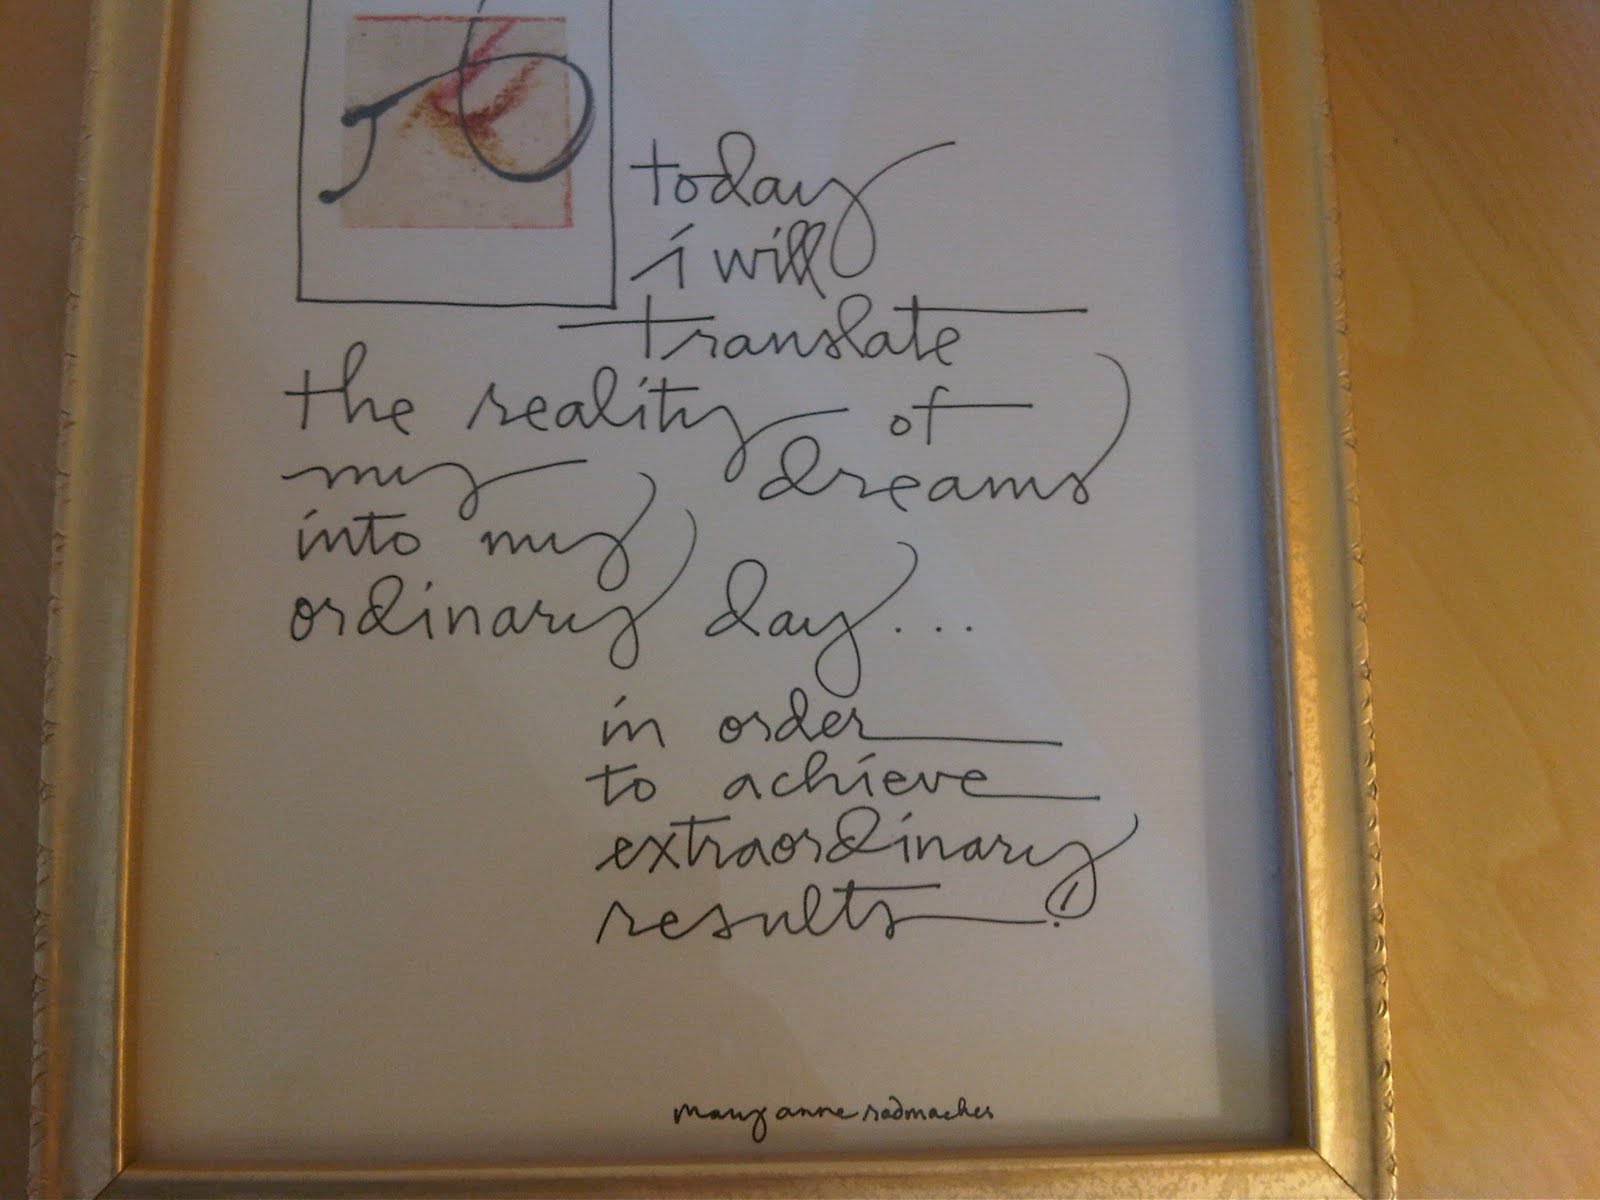 today
i will
translate
the reality of
my dreams
into my
ordinary day...
in order
to achieve
extraordinary
results!
mary anne radmacher